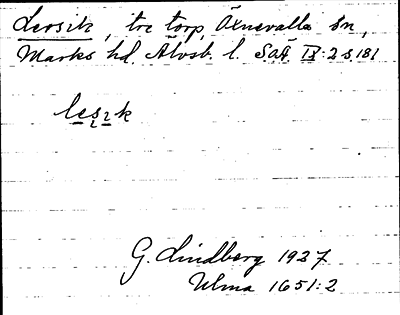 Lersik, tre torp, Öxnevalla sn,
Marks hd. Älvsb. l. SOÄ IX:2 s. 181
leṣik
G. Lindberg 1927
Ulma 1651:2